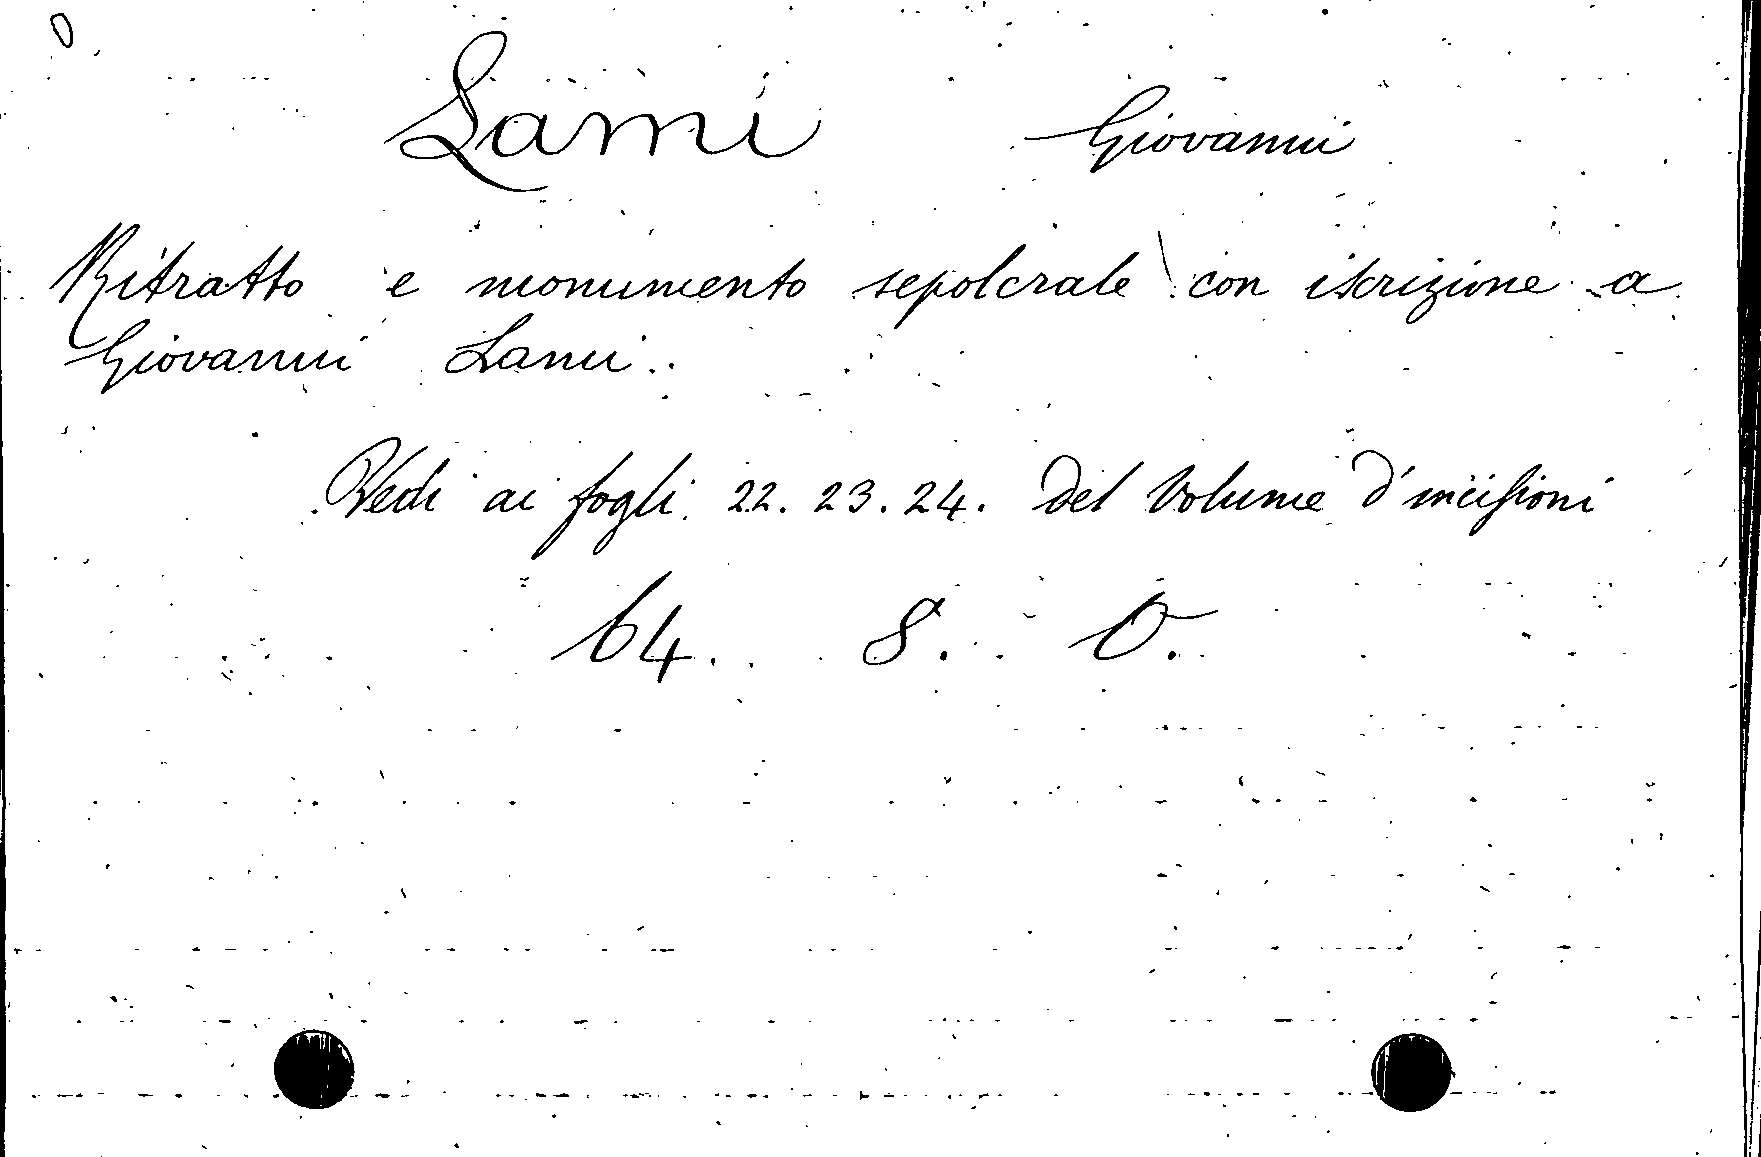 0
Lami Giovanni
Ritratto e monumento sepolcrale con iscrizione a
Giovanni Lami.
Vedi ai fogli 22. 23. 24. del Volume d'incisioni
64. 8. O.